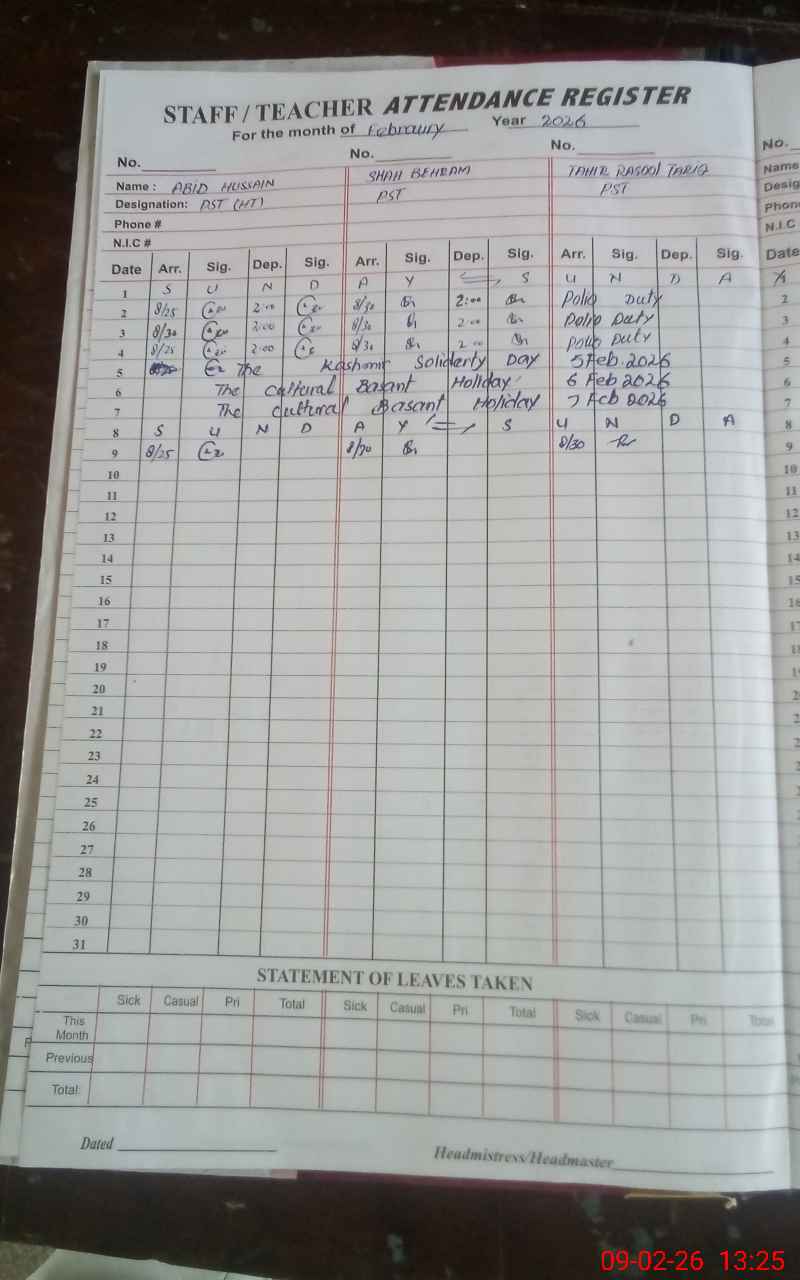 STAFF / TEACHER ATTENDANCE REGISTER
For the month of Febraury Year 2026
No. No. No.
Name : ABID HUSSAIN SHAH BEHRAM TAHIR RASOOL TARIQ
Designation: PST (HT) PST PST
Phone #
N.I.C #
Date Arr. Sig. Dep. Sig. Arr. Sig. Dep. Sig. Arr. Sig. Dep. Sig.
1 S U N D A Y S U N D A Y
2 8/25 2:00 8/30 2:00 Polio Duty
3 8/30 2:00 8/30 2:00 Polio Duty
4 8/25 2:00 8/30 2 00 Polio Duty
5 The Kashmir Soliderty Day 5 Feb. 2026
6 The Cultural Basant Holiday 6 Feb 2026
7 The Cultural Basant Holiday 7 Feb 2026
8 S U N D A Y S U N D A
9 8/25 8/30 8/30
10
11
12
13
14
15
16
17
18
19
20
21
22
23
24
25
26
27
28
29
30
31
STATEMENT OF LEAVES TAKEN
Sick Casual Pri Total Sick Casual Pri Total Sick Casual Pri Total
This Month
Previous
Total:
Dated Headmistress/Headmaster
No.
Name
Desig
Phone
N.I.C
Date
2
3
4
5
6
7
8
9
10
11
12
13
14
15
16
17
09-02-26 13:25